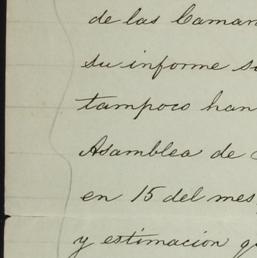 de las Camar
su informe s
tampoco han
Asamblea de
en 15 del mes
y estimacion q